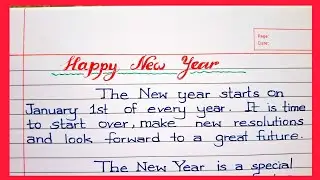 Page:
Date:
Happy New Year
The New year starts on
January 1st of every year. It is time
to start over, make new resolutions
and look forward to a great future.
The New Year is a special